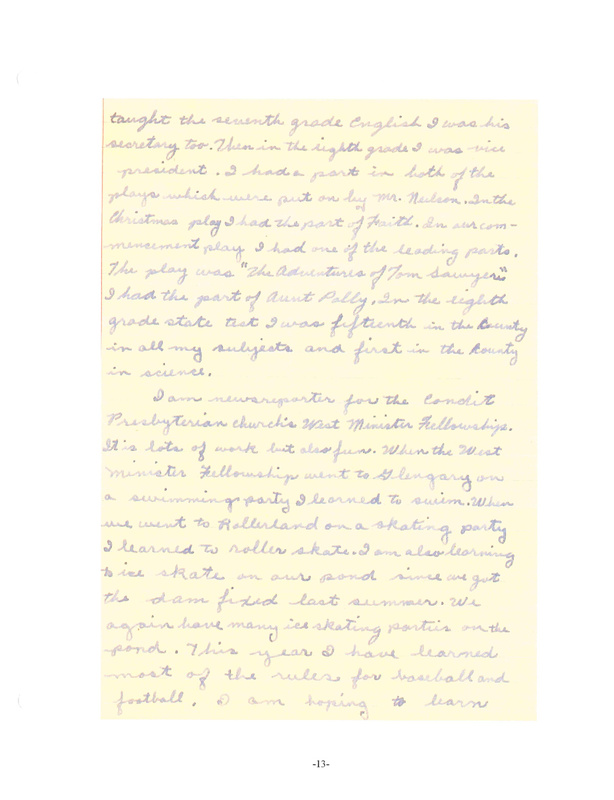 taught the seventh grade English I was his
secretary too. Then in the eighth grade I was vice
president. I had a part in both of the
plays which were put on by Mr. Neilson. In the
Christmas play I had the part of Faith. In our com-
mencement play I had one of the leading parts.
The play was "The Adventures of Tom Sawyer."
I had the part of Aunt Polly. In the eighth
grade state test I was fifteenth in the County
in all my subjects and first in the County
in science.
I am newsreporter for the Condit
Presbyterian church's West Minister Fellowship.
It is lots of work but also fun. When the West
Minister Fellowship went to Glengary on
a swimming party I learned to swim. When
we went to Rollerland on a skating party
I learned to roller skate. I am also learning
to ice skate on our pond since we got
the dam fixed last summer. We
again have many ice skating parties on the
pond. This year I have learned
most of the rules for baseball and
football. I am hoping to learn
-13-